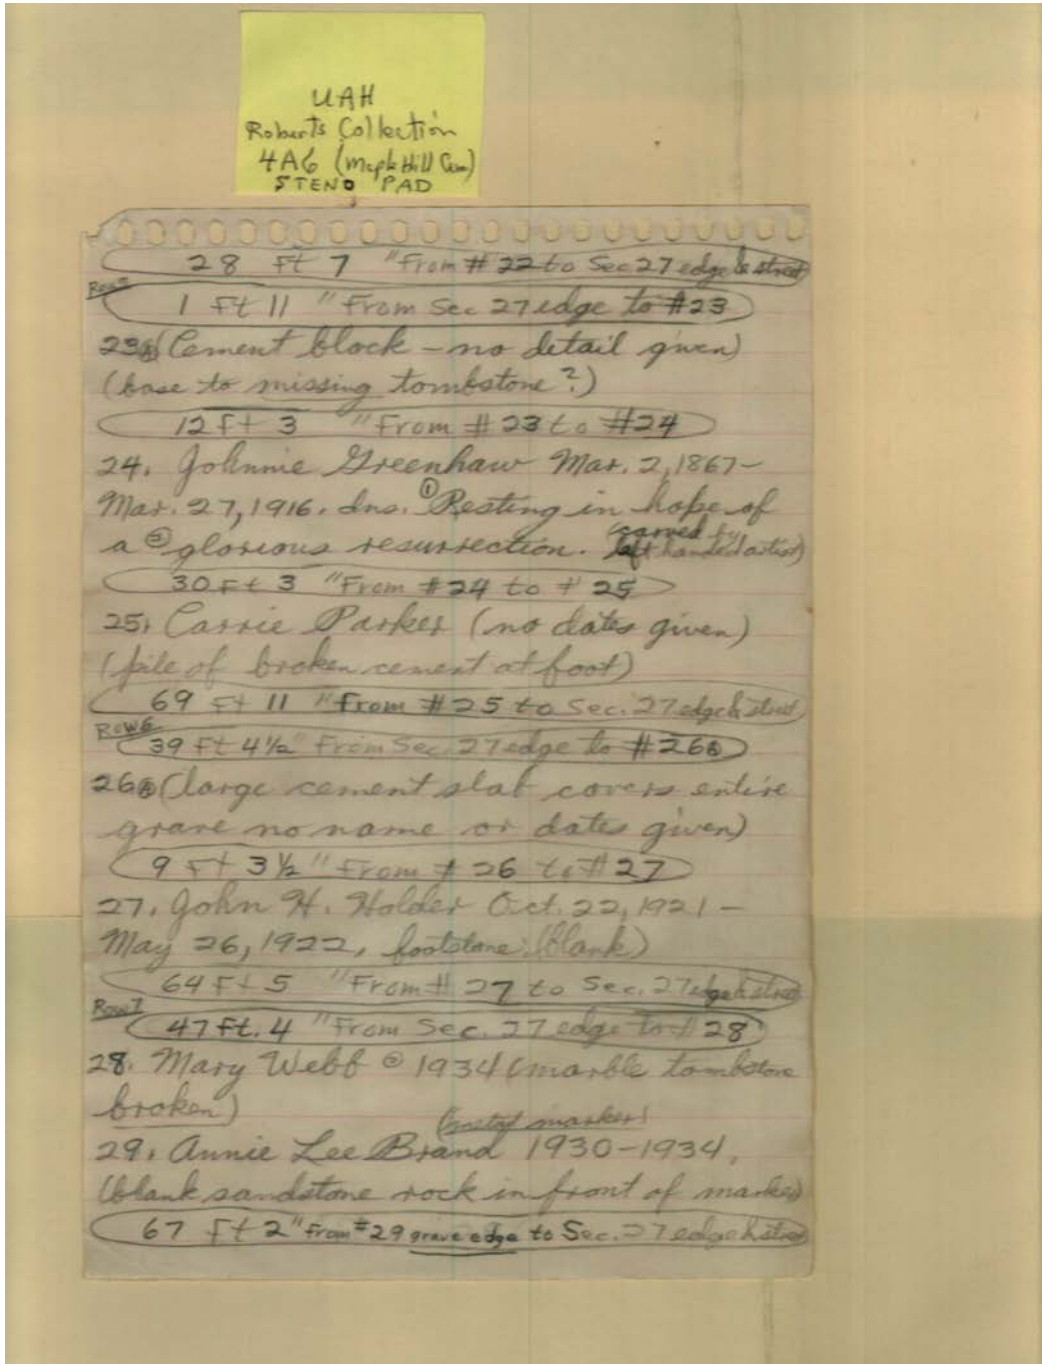 UAH
Roberts Collection
4A6 (Maple Hill Cem)
STENO PAD
28 Ft 7 "From #22 to Sec 27 edge & street
Row 5
1 Ft 11 "From Sec 27 edge to #23
23 (Cement block - no detail given)
(base to missing tombstone?)
12 Ft 3 "From #23 to #24
24. Johnnie Greenhaw Mar. 2, 1867-
Mar. 27, 1916. dns. ① Resting in hope of
a ② glorious resurrection. (carved by
left handed artist)
30 Ft 3 "From #24 to #25
25. Carrie Parker (no dates given)
(pile of broken cement at foot)
69 Ft 11 "From #25 to Sec. 27 edge & street
Row 6
39 Ft 4½" From Sec. 27 edge to #26
26 (large cement slab covers entire
grave no name or dates given)
9 Ft 3½ "From #26 to #27
27. John H. Holder Oct. 22, 1921 -
May 26, 1922, footstone: (blank)
64 Ft 5 "From # 27 to Sec. 27 edge & street
Row 7
47 Ft. 4 "From Sec. 27 edge to #28
28. Mary Webb @ 1934 (marble tombstone
broken)
(metal marker)
29. Annie Lee Brand 1930-1934.
(blank sandstone rock in front of marker)
67 Ft 2" From #29 grave edge to Sec. 27 edge & street